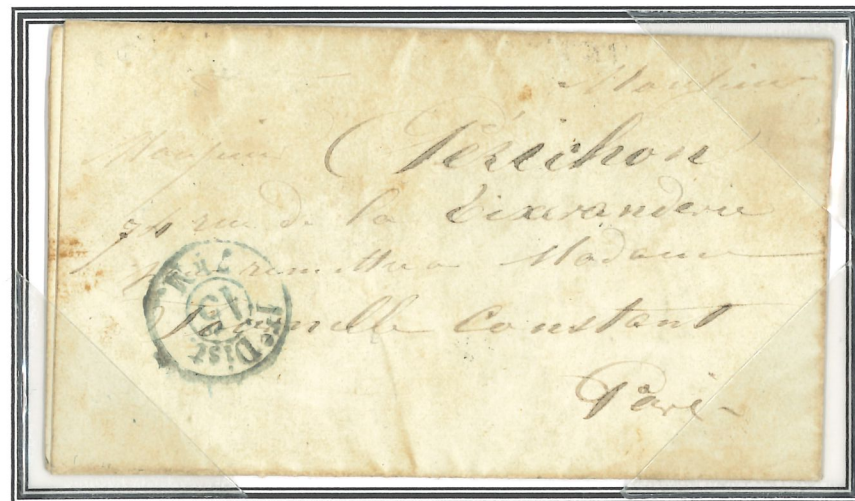 Monsieur
Monsieur Périchon
74 rue de la Tixeranderie
pour remettre a Madame
Constant
Paris
15
Dist.